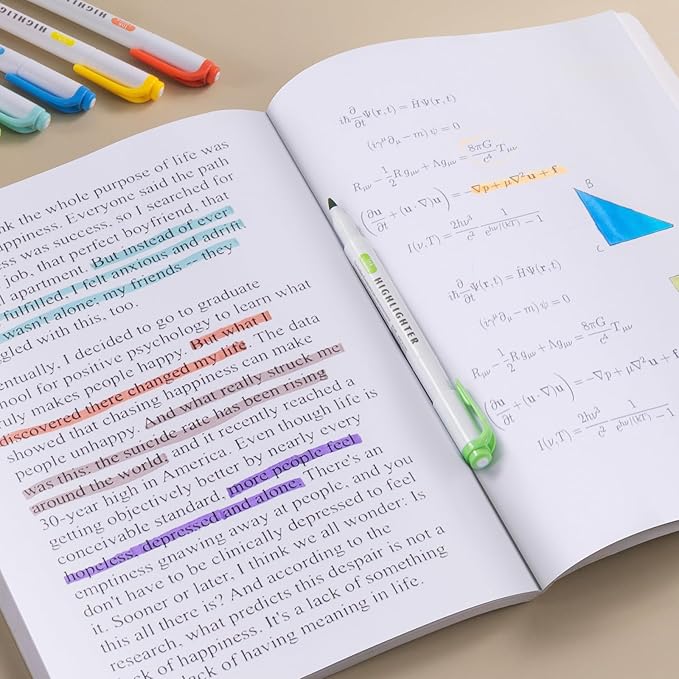 HIGHLIGHTER
HIGHLIGHTER
nk the whole purpose of life was
ppiness. Everyone said the path
ess was success, so I searched for
job, that perfect boyfriend, that
l apartment. But instead of ever
fulfilled, I felt anxious and adrift
wasn't alone; my friends -- they
ggled with this, too.
entually, I decided to go to graduate
hool for positive psychology to learn what
ruly makes people happy. But what I
discovered there changed my life. The data
showed that chasing happiness can make
people unhappy. And what really struck me
was this: the suicide rate has been rising
around the world, and it recently reached a
30-year high in America. Even though life is
getting objectively better by nearly every
conceivable standard, more people feel
hopeless, depressed and alone. There's an
emptiness gnawing away at people, and you
don't have to be clinically depressed to feel
it. Sooner or later, I think we all wonder: Is
this all there is? And according to the
research, what predicts this despair is not a
lack of happiness. It's a lack of something
lack of having meaning in life.
HIGHLIGHTER
iħ∂/∂t Ψ(r,t) = ĤΨ(r,t)
(iγ^μ∂_μ − m)ψ = 0
R_μν − 1/2 Rg_μν + Λg_μν = 8πG/c⁴ T_μν
(∂u/∂t + (u · ∇)u) = −∇p + μ∇²u + f
I(ν,T) = 2hν³/c² 1/(e^{hν/(kT)} − 1)
B
C
iħ∂/∂t Ψ(r,t) = ĤΨ(r,t)
(iγ^μ∂_μ − m)ψ = 0
R_μν − 1/2 Rg_μν + Λg_μν = 8πG/c⁴ T_μν
(∂u/∂t + (u · ∇)u) = −∇p + μ∇²u + f
I(ν,T) = 2hν³/c² 1/(e^{hν/(kT)} − 1)